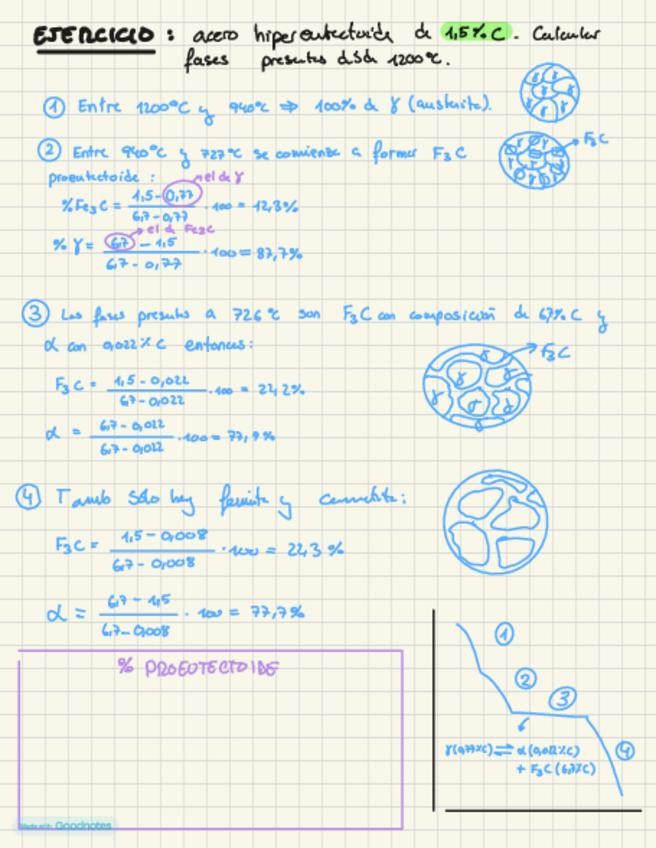 EJERCICIO: acero hipereutectoide de 1,5% C. Calcular
fases presentes desde 1200ºC.
① Entre 1200ºC y 940ºC ⇒ 100% de γ (austenita).
② Entre 940ºC y 727ºC se comienza a formar F3C
proeutectoide:
el de γ
%Fe3C = (1,5-0,77)/(6,7-0,77) · 100 = 12,3%
el de Fe3C
% γ = (6,7 - 1,5)/(6,7 - 0,77) · 100 = 87,7%
F3C
③ Las fases presentes a 726ºC son F3C con composición de 6,7% C y
α con 0,022% C entonces:
F3C
F3C = (1,5 - 0,022)/(6,7 - 0,022) · 100 = 22,2%
α = (6,7 - 0,022)/(6,7 - 0,022) · 100 = 77,9%
④ Tamb sólo hay ferrita y cementita:
F3C = (1,5 - 0,008)/(6,7 - 0,008) · 100 = 22,3 %
α = (6,7 - 1,5)/(6,7 - 0,008) · 100 = 77,7%
% PROEUTECTOIDE
①
②
③
④
γ(0,77%C) ⇌ α(0,022%C)
+ F3C (6,7%C)
Made with Goodnotes